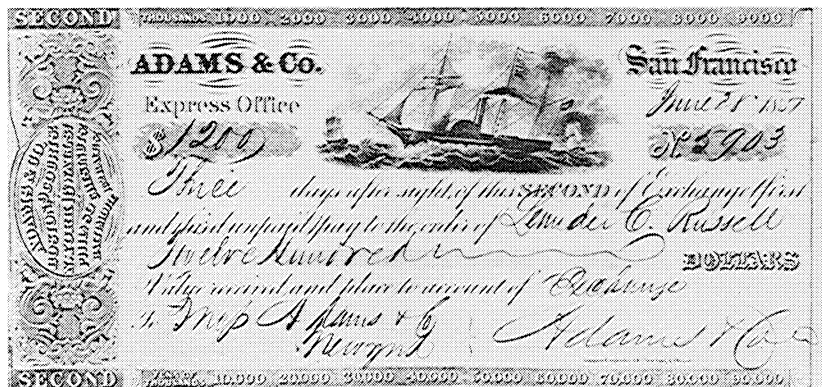 SECOND THOUSANDS 1000 2000 3000 4000 5000 6000 7000 8000 9000
ADAMS & Co. San Francisco
Express Office June 28
$ 1200 No 5903
Three days after sight of this SECOND of Exchange (first
and third unpaid) pay to the order of C. Russell
Twelve Hundred DOLLARS
Value received and place to account of Exchange
To Mess Adams & Co Adams & Co
New York
SECOND THOUSANDS 10,000 20,000 30,000 40,000 50,000 60,000 70,000 80,000 90,000
ADAMS & CO.